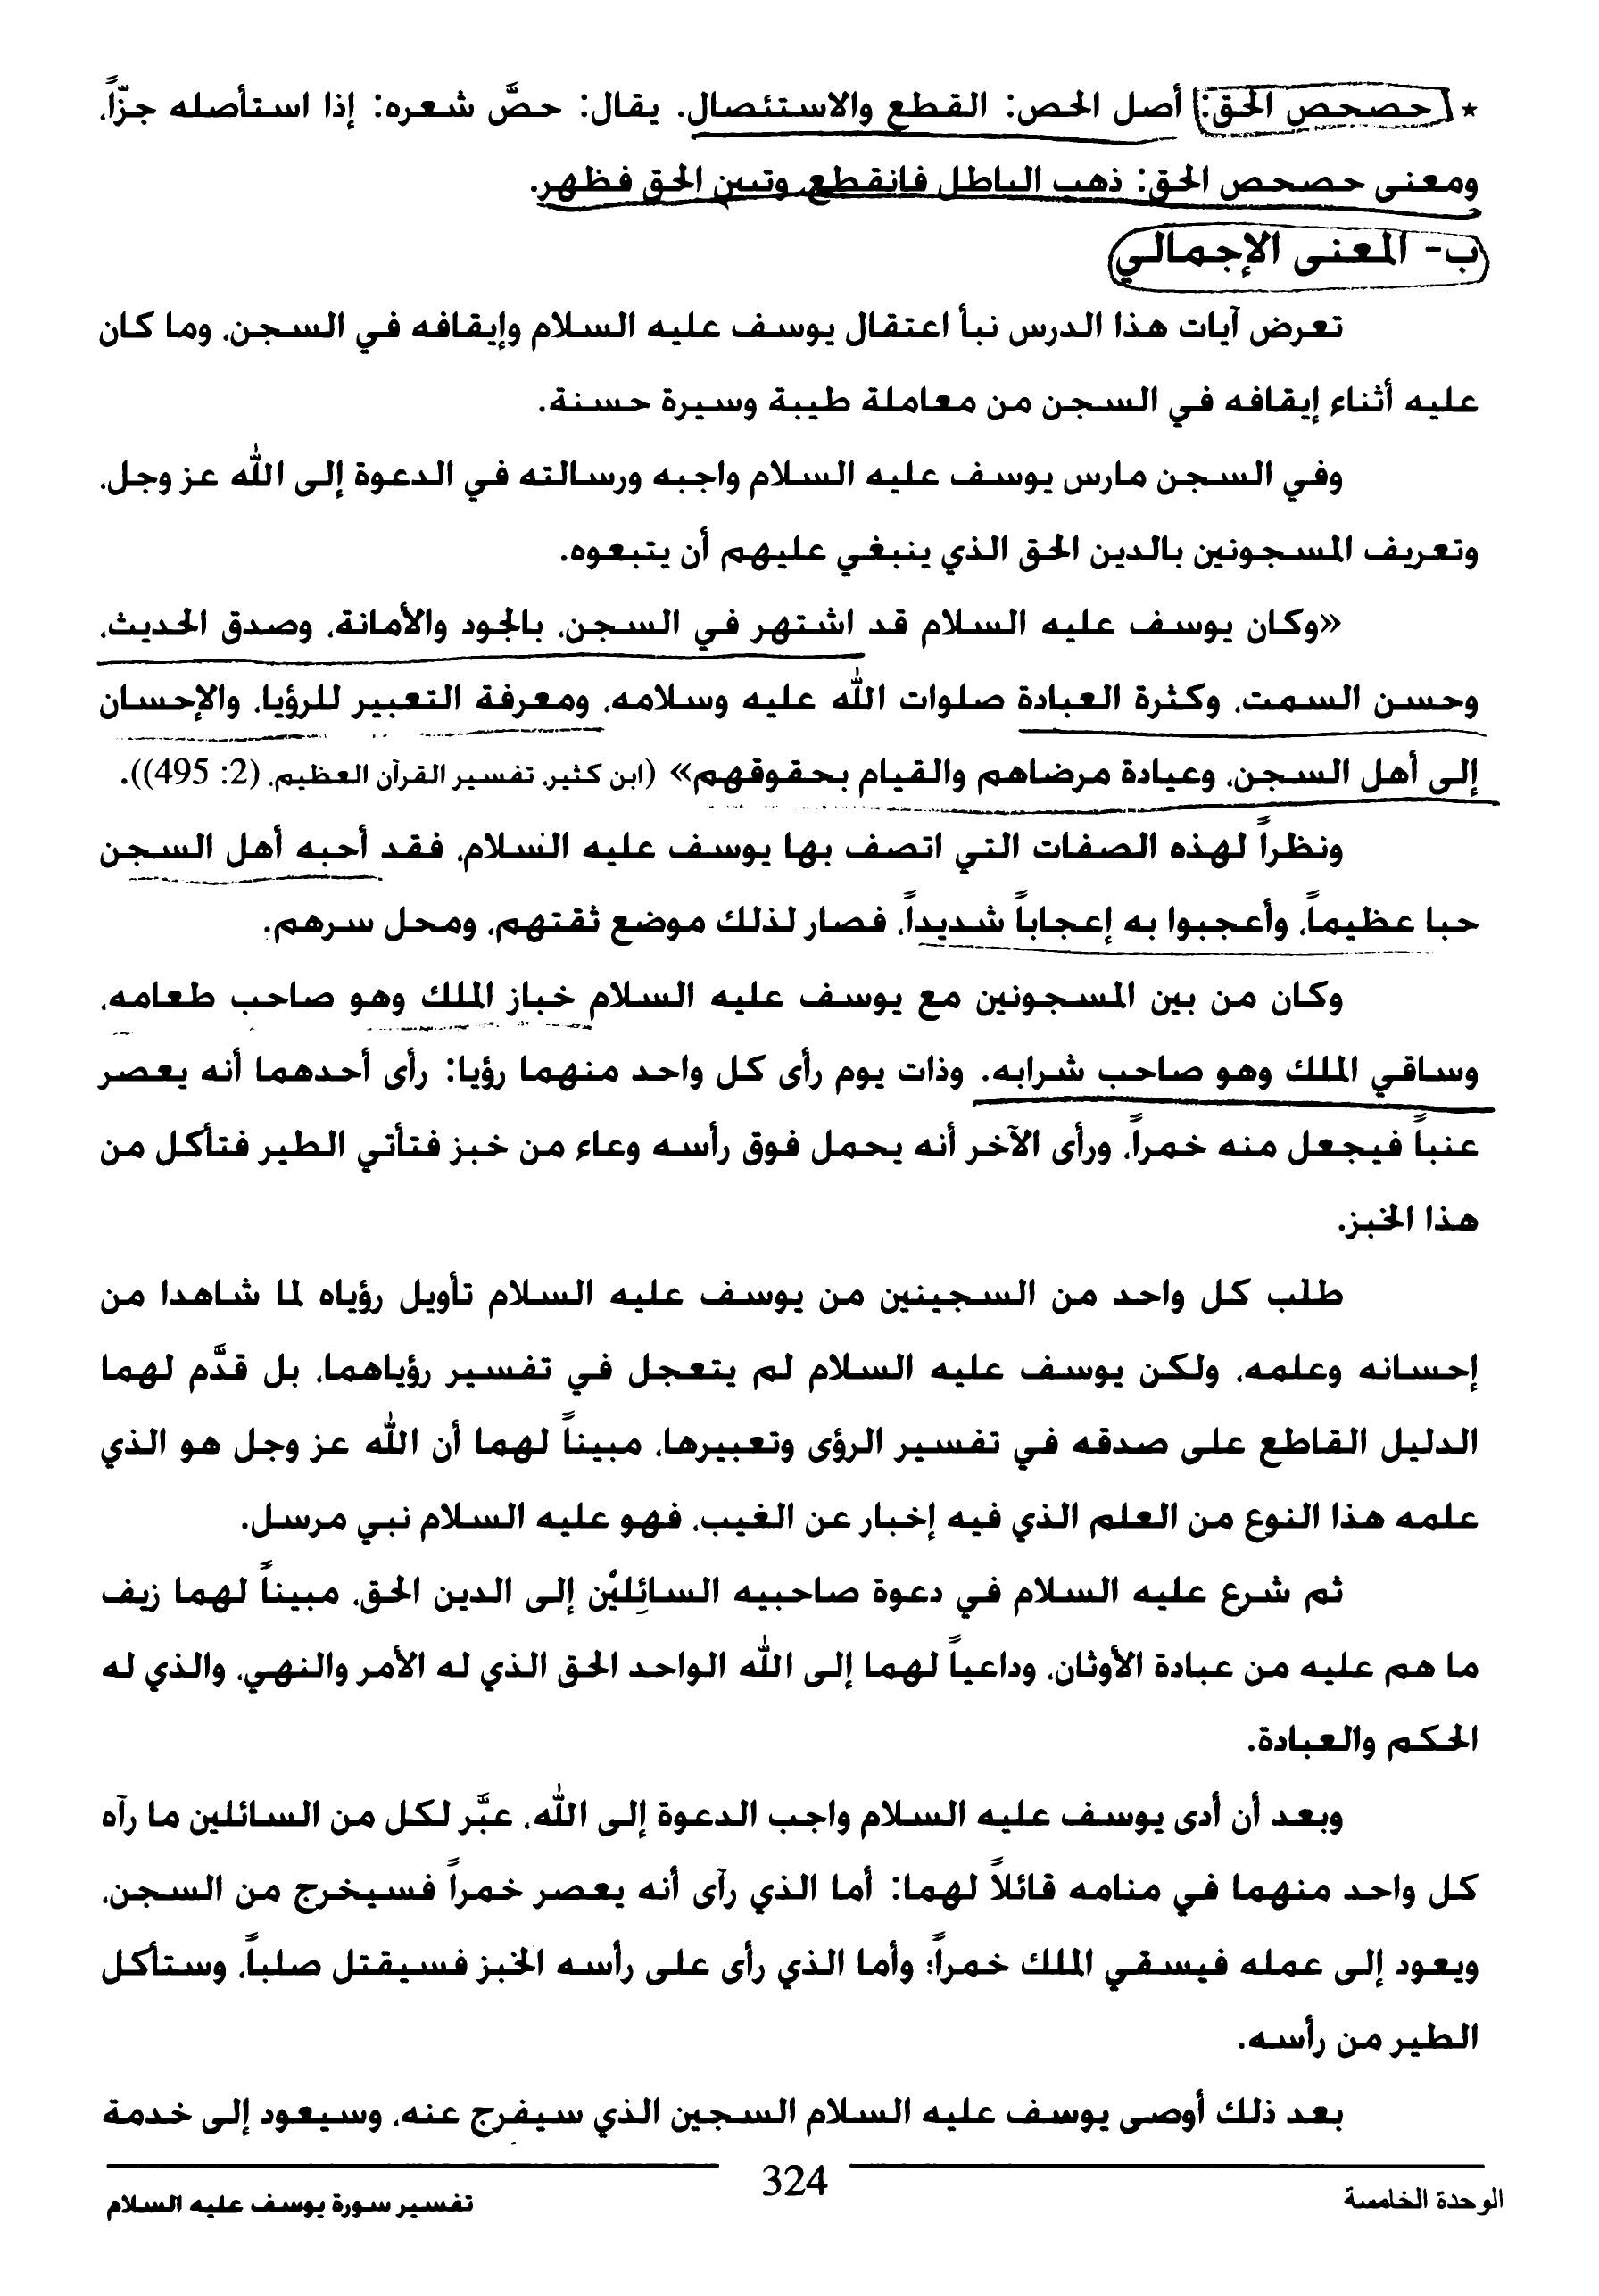 * [حصحص الحق:] أصل الحص: القطع والاستئصال. يقال: حصَّ شعره: إذا استأصله جزّاً،
ومعنى حصحص الحق: ذهب الباطل فانقطع وتبين الحق فظهر.
ب- المعنى الإجمالي
تعرض آيات هذا الدرس نبأ اعتقال يوسف عليه السلام وإيقافه في السجن، وما كان
عليه أثناء إيقافه في السجن من معاملة طيبة وسيرة حسنة.
وفي السجن مارس يوسف عليه السلام واجبه ورسالته في الدعوة إلى الله عز وجل،
وتعريف المسجونين بالدين الحق الذي ينبغي عليهم أن يتبعوه.
«وكان يوسف عليه السلام قد اشتهر في السجن، بالجود والأمانة، وصدق الحديث،
وحسن السمت، وكثرة العبادة صلوات الله عليه وسلامه، ومعرفة التعبير للرؤيا، والإحسان
إلى أهل السجن، وعيادة مرضاهم والقيام بحقوقهم» (ابن كثير، تفسير القرآن العظيم، (2: 495)).
ونظراً لهذه الصفات التي اتصف بها يوسف عليه السلام، فقد أحبه أهل السجن
حبا عظيماً، وأعجبوا به إعجاباً شديداً، فصار لذلك موضع ثقتهم، ومحل سرهم.
وكان من بين المسجونين مع يوسف عليه السلام خباز الملك وهو صاحب طعامه،
وساقي الملك وهو صاحب شرابه. وذات يوم رأى كل واحد منهما رؤيا: رأى أحدهما أنه يعصر
عنباً فيجعل منه خمراً، ورأى الآخر أنه يحمل فوق رأسه وعاء من خبز فتأتي الطير فتأكل من
هذا الخبز.
طلب كل واحد من السجينين من يوسف عليه السلام تأويل رؤياه لما شاهدا من
إحسانه وعلمه، ولكن يوسف عليه السلام لم يتعجل في تفسير رؤياهما، بل قدَّم لهما
الدليل القاطع على صدقه في تفسير الرؤى وتعبيرها، مبيناً لهما أن الله عز وجل هو الذي
علمه هذا النوع من العلم الذي فيه إخبار عن الغيب، فهو عليه السلام نبي مرسل.
ثم شرع عليه السلام في دعوة صاحبيه السائلين إلى الدين الحق، مبيناً لهما زيف
ما هم عليه من عبادة الأوثان، وداعياً لهما إلى الله الواحد الحق الذي له الأمر والنهي، والذي له
الحكم والعبادة.
وبعد أن أدى يوسف عليه السلام واجب الدعوة إلى الله، عبَّر لكل من السائلين ما رآه
كل واحد منهما في منامه قائلاً لهما: أما الذي رآى أنه يعصر خمراً فسيخرج من السجن،
ويعود إلى عمله فيسقي الملك خمراً؛ وأما الذي رأى على رأسه الخبز فسيقتل صلباً، وستأكل
الطير من رأسه.
بعد ذلك أوصى يوسف عليه السلام السجين الذي سيفرج عنه، وسيعود إلى خدمة
الوحدة الخامسة 324 تفسير سورة يوسف عليه السلام